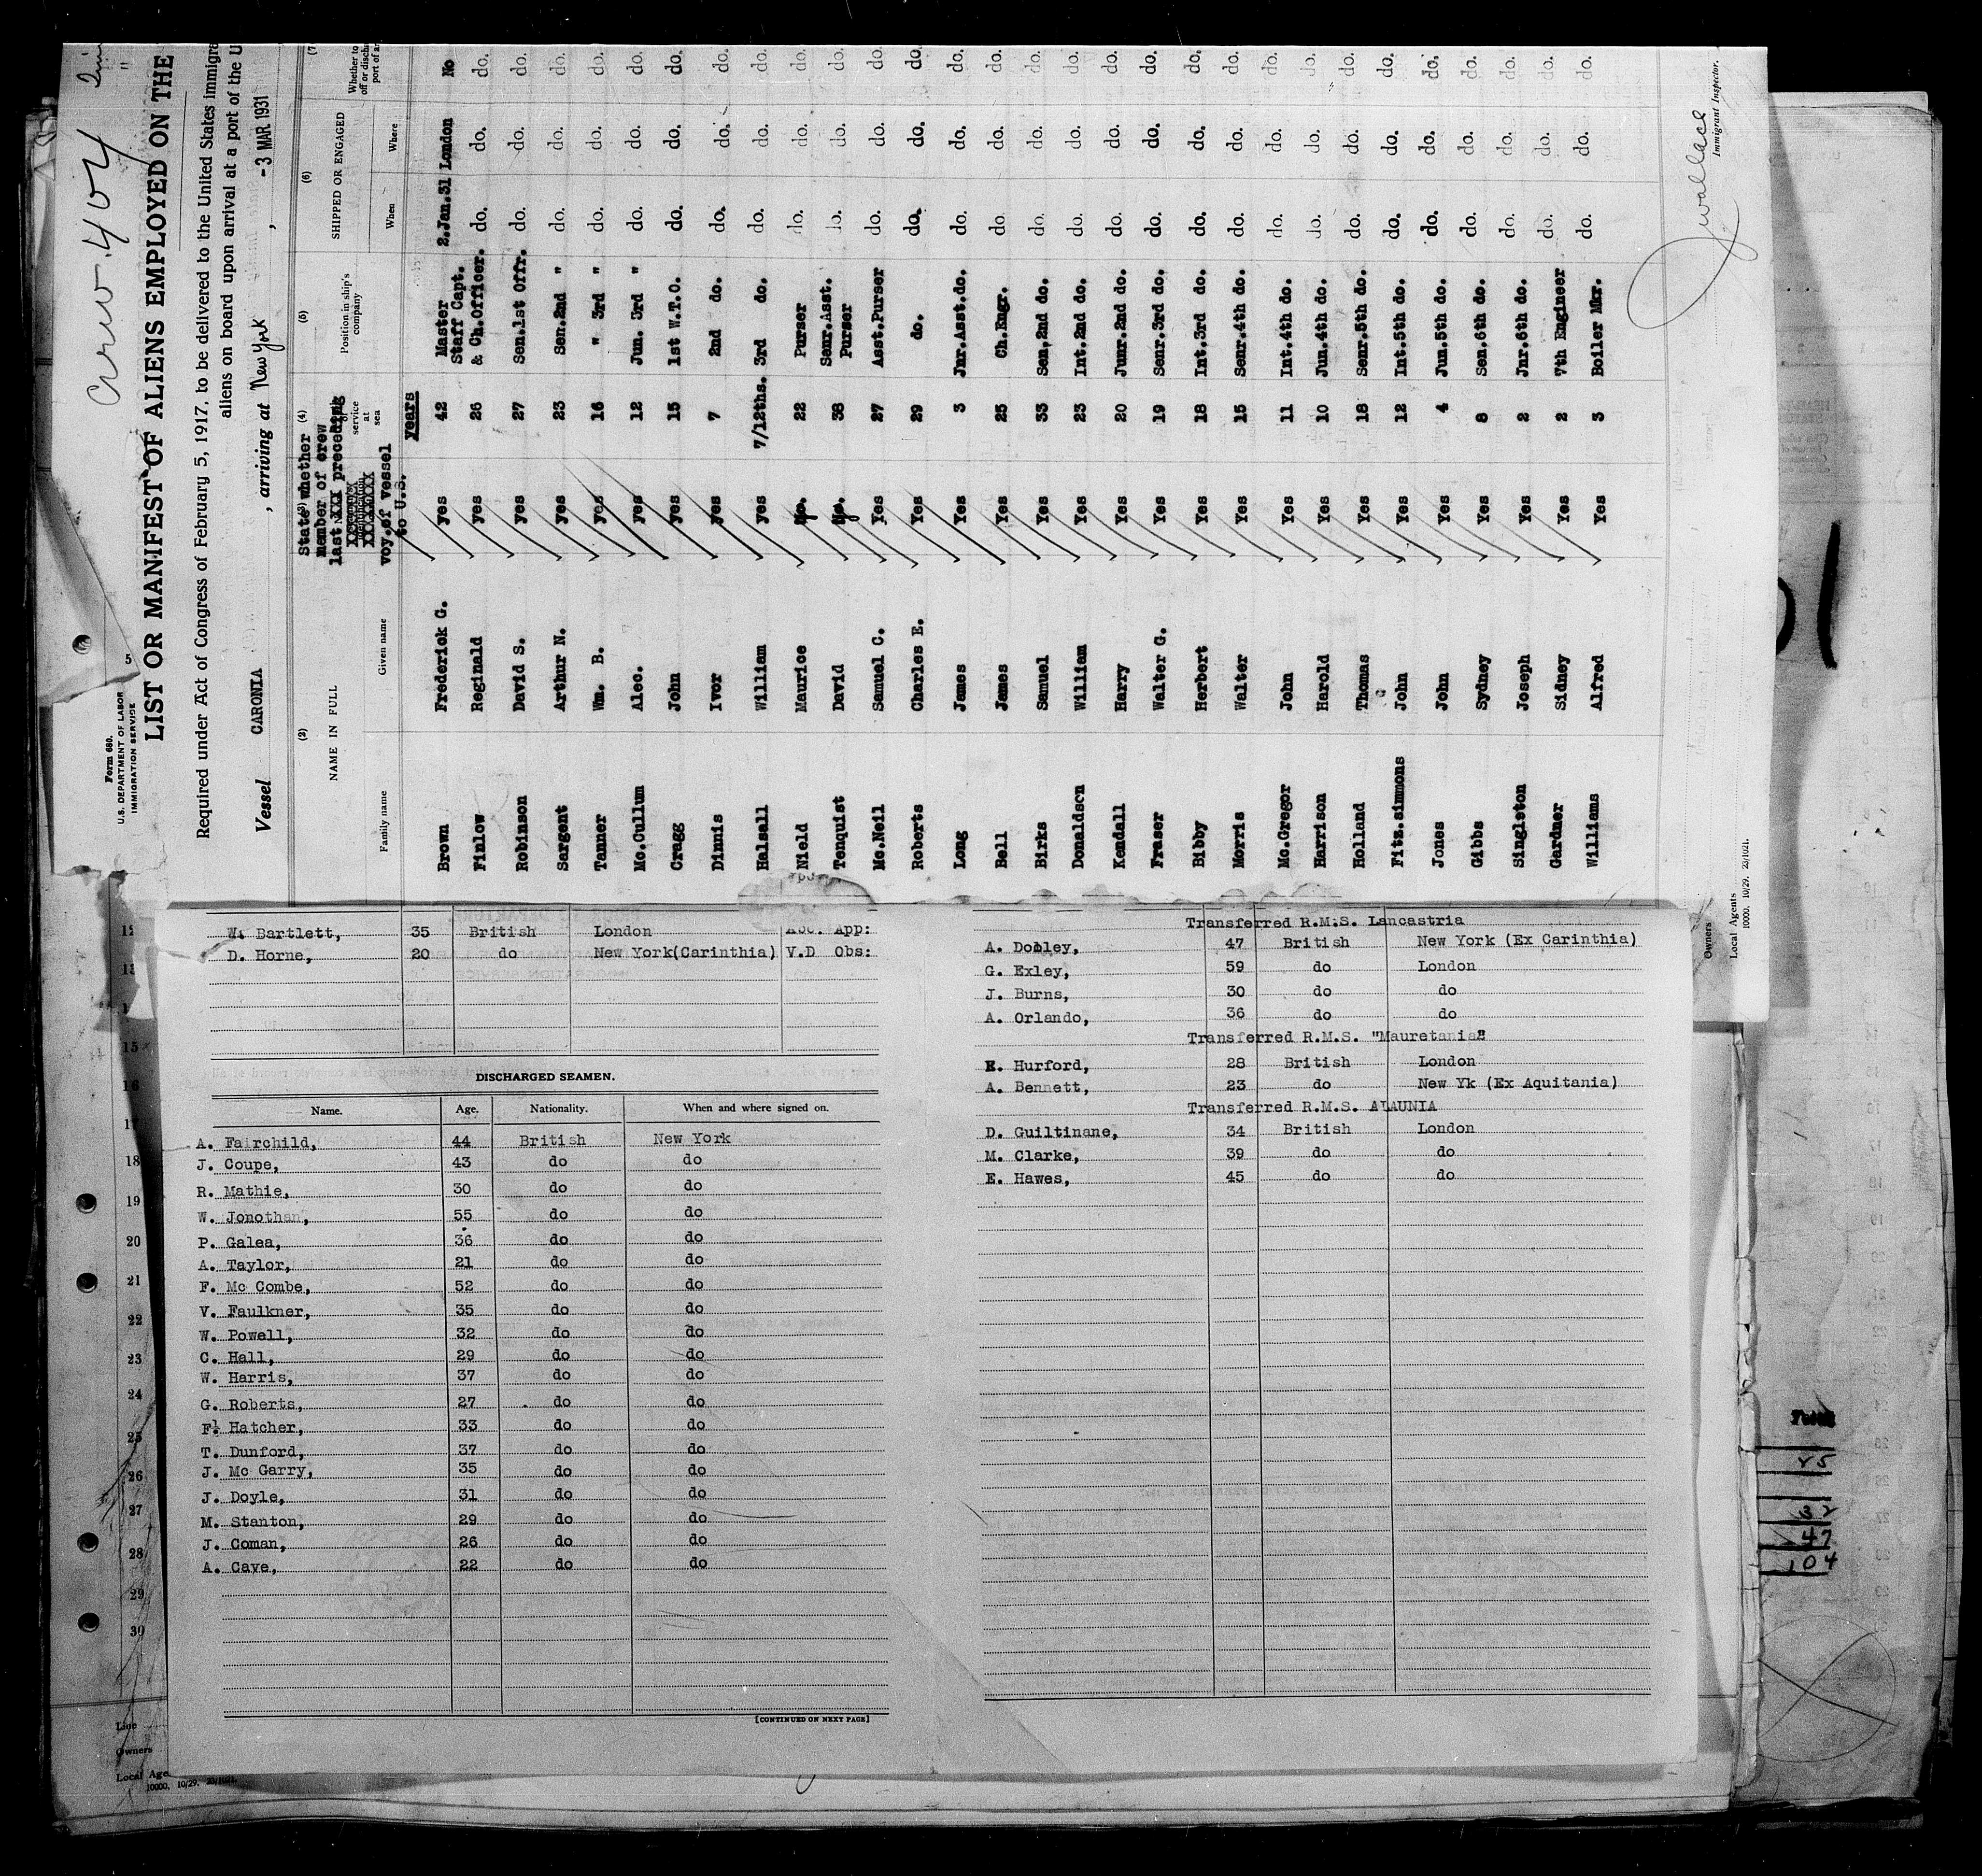 Crew 404
Form 680.
U.S. DEPARTMENT OF LABOR
IMMIGRATION SERVICE
5
LIST OR MANIFEST OF ALIENS EMPLOYED ON THE
Required under Act of Congress of February 5, 1917, to be delivered to the United States immigra
aliens on board upon arrival at a port of the U
Vessel CARONIA , arriving at New York , -3 MAR 1931
(2) (4) (5) (6) (7
NAME IN FULL
Family name Given name
State whether
member of crew
last XXX preceding
voy.of vessel
to U.S.
service
at
sea
Position in ship's
company
SHIPPED OR ENGAGED
When Where
Whether to
off or disch
port of ar
years
Brown Frederick G. yes 42 Master 2.Jan.31 London No
Finlow Reginald yes 26 Staff Capt. & Ch.Officer. do. do. do.
Robinson David S. yes 27 Sen.1st Offr. do. do. do.
Sargent Arthur N. yes 23 Sen.2nd " do. do. do.
Tanner Wm. B. yes 16 " 3rd " do. do. do.
Mc.Cullum Alec. yes 12 Jun. 3rd " do. do. do.
Cragg John yes 15 1st W.T.O. do. do. do.
Dinnis Ivor yes 7 2nd do. do. do. do.
Halsall William yes 7/12ths. 3rd do. do. do. do.
Nield Maurice No. 22 Purser do. do. do.
Tenquist David No. 38 Senr.Asst. Purser do. do. do.
Mc.Neil Samuel C. Yes 27 Asst.Purser do. do. do.
Roberts Charles E. Yes 29 do. do. do. do.
Long James Yes 3 Jnr.Asst.do. do. do. do.
Bell James Yes 25 Ch.Engr. do. do. do.
Birks Samuel Yes 33 Sen.2nd do. do. do. do.
Donaldson William Yes 23 Int.2nd do. do. do. do.
Kendall Harry Yes 20 Junr.2nd do. do. do. do.
Fraser Walter G. Yes 19 Senr.3rd do. do. do. do.
Bibby Herbert Yes 18 Int.3rd do. do. do. do.
Morris Walter Yes 15 Senr.4th do. do. do. do.
Mc.Gregor John Yes 11 Int.4th do. do. do. do.
Harrison Harold Yes 10 Jun.4th do. do. do. do.
Holland Thomas Yes 18 Senr.5th do. do. do. do.
Fitz.simmons John Yes 12 Int.5th do. do. do. do.
Jones John Yes 4 Jun.5th do. do. do. do.
Gibbs Sydney Yes 8 Sen.6th do. do. do. do.
Singleton Joseph Yes 2 Jnr.6th do. do. do. do.
Gardner Sidney Yes 2 7th Engineer do. do. do.
Williams Alfred Yes 3 Boiler Mkr. do. do. do.
Jwallace
Immigrant Inspector.
Owners
Local Agents
10000. 10/29. 23/1021.
W. Bartlett, 35 British London App:
D. Horne, 20 do New York(Carinthia) V.D Obs:
DISCHARGED SEAMEN.
Name. Age. Nationality. When and where signed on.
A. Fairchild, 44 British New York
J. Coupe, 43 do do
R. Mathie, 30 do do
W. Jonothan, 55 do do
P. Galea, 36 do do
A. Taylor, 21 do do
F. Mc Combe, 52 do do
V. Faulkner, 35 do do
W. Powell, 32 do do
C. Hall, 29 do do
W. Harris, 37 do do
G. Roberts, 27 do do
F. Hatcher, 33 do do
T. Dunford, 37 do do
J. Mc Garry, 35 do do
J. Doyle, 31 do do
M. Stanton, 29 do do
J. Coman, 26 do do
A. Cave, 22 do do
[CONTINUED ON NEXT PAGE]
Transferred R.M.S. Lancastria
A. Dobley, 47 British New York (Ex Carinthia)
G. Exley, 59 do London
J. Burns, 30 do do
A. Orlando, 36 do do
Transferred R.M.S. "Mauretania"
E. Hurford, 28 British London
A. Bennett, 23 do New Yk (Ex Aquitania)
Transferred R.M.S. ALAUNIA
D. Guiltinane, 34 British London
M. Clarke, 39 do do
E. Hawes, 45 do do
12
13
15
16
18
19
20
21
22
23
24
25
26
27
28
29
30
Line
Owners
Local Age
10000. 10/29.
Total
104